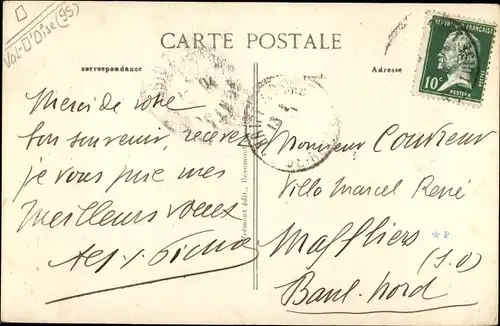 Val-D'Oise (95)
CARTE POSTALE
correspondance
Adresse
RÉPUBLIQUE FRANÇAISE
10c
POSTES
Merci de votre
bon souvenir, recevez
je vous prie mes
meilleurs voeux
Frémont édit., Beaumont
Monsieur Couvreur
Villa Marcel René
Maffliers
(S.O)
Banl. Nord